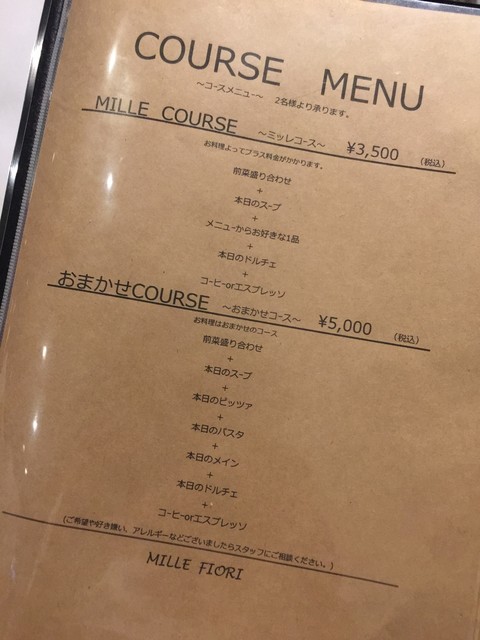 COURSE MENU
～コースメニュー～ 2名様より承ります。
MILLE COURSE ～ミッレコース～ ¥3,500 (税込)
お料理よってプラス料金がかかります。
前菜盛り合わせ
+
本日のスープ
+
メニューからお好きな1品
+
本日のドルチェ
+
コーヒーorエスプレッソ
おまかせCOURSE ～おまかせコース～ ¥5,000 (税込)
お料理はおまかせのコース
前菜盛り合わせ
+
本日のスープ
+
本日のピッツァ
+
本日のパスタ
+
本日のメイン
+
本日のドルチェ
+
コーヒーorエスプレッソ
(ご希望や好き嫌い、アレルギーなどございましたらスタッフにご相談ください。)
MILLE FIORI